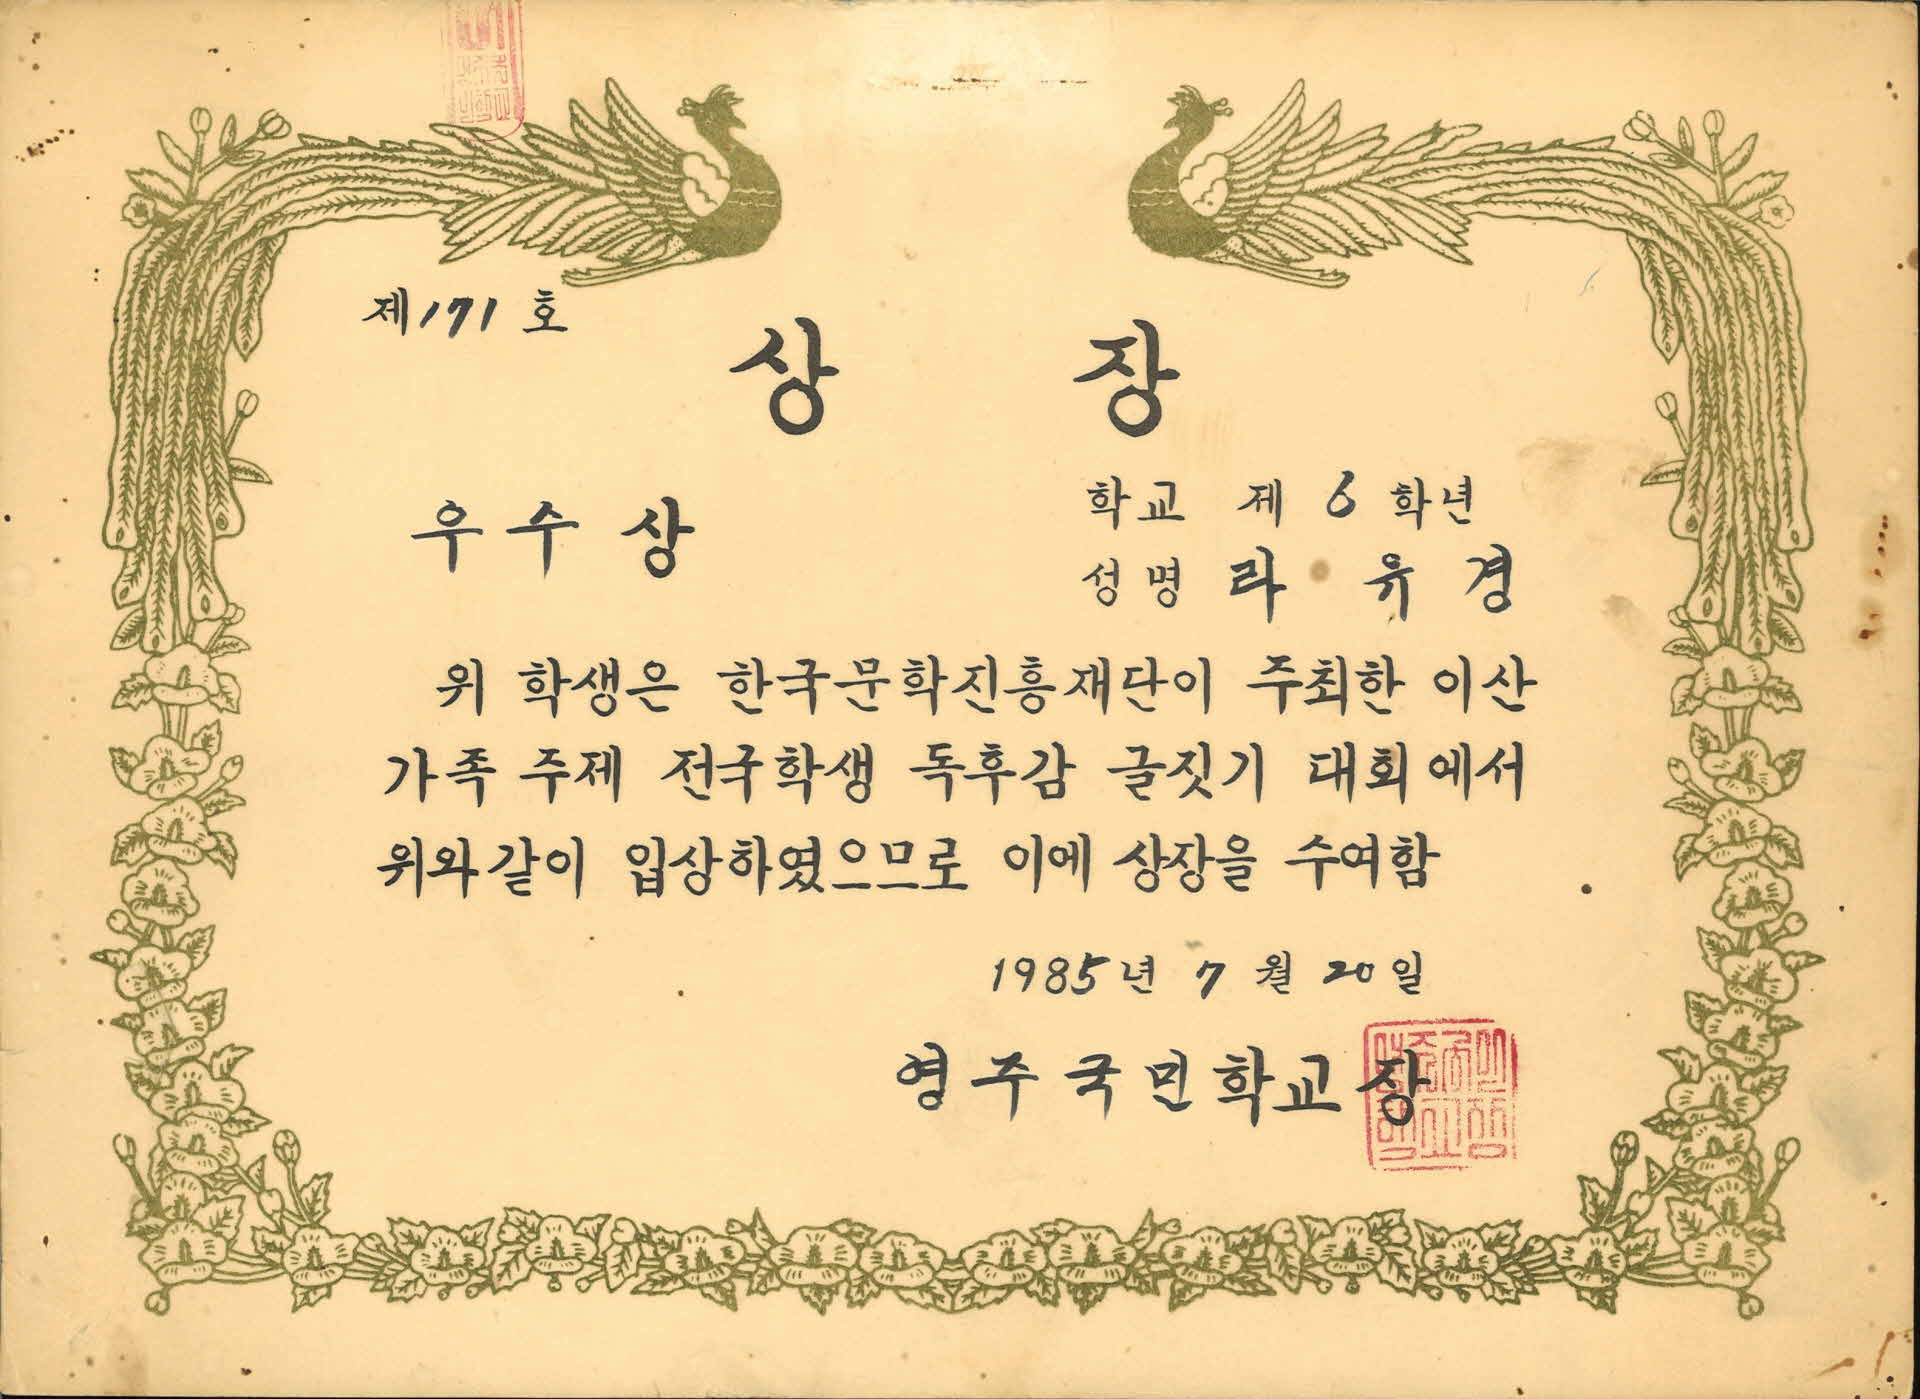 제171호
상 장
우수상
학교 제 6 학년
성명 라 유 경
위 학생은 한국문학진흥재단이 주최한 이산
가족 주제 전국학생 독후감 글짓기 대회에서
위와같이 입상하였으므로 이에 상장을 수여함
1985년 7월 20일
영주국민학교장